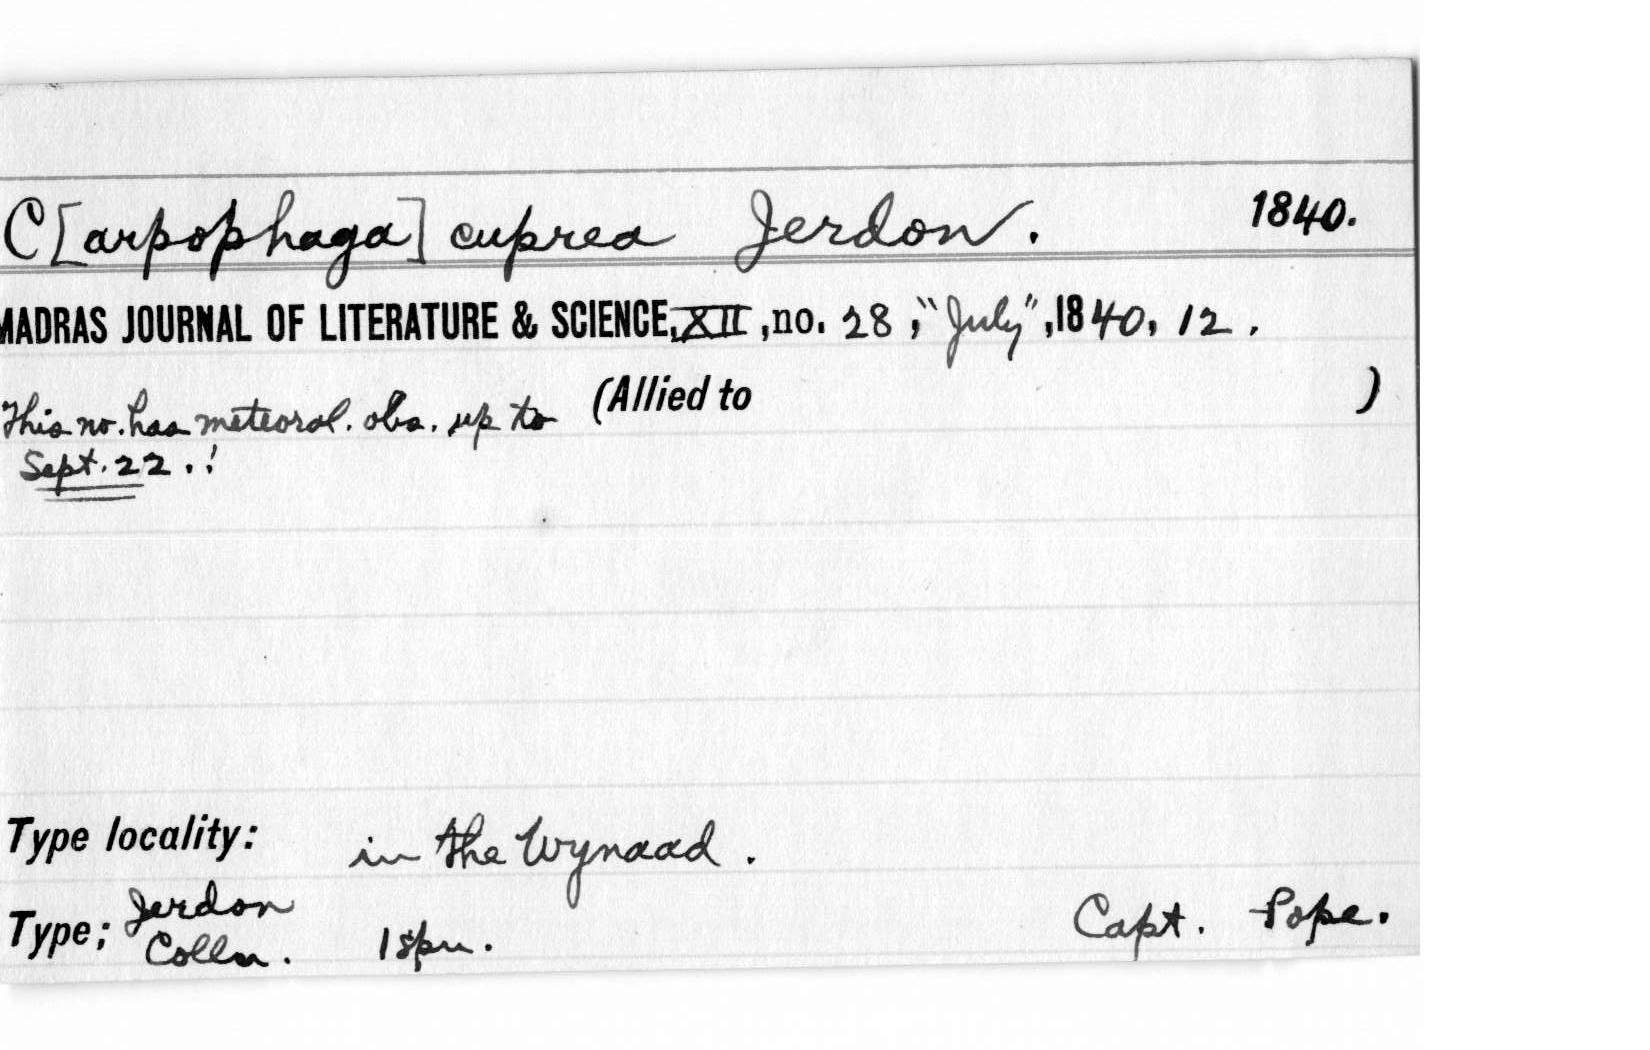 C[arpophaga] cuprea Jerdon. 1840.
MADRAS JOURNAL OF LITERATURE & SCIENCE, XII, no. 28, "July", 1840, 12.
(Allied to )
This no. has meteorol. obs. up to
Sept. 22.!
Type locality: in the Wynaad.
Type; Jerdon
Colln. 1 spn. Capt. Pope.